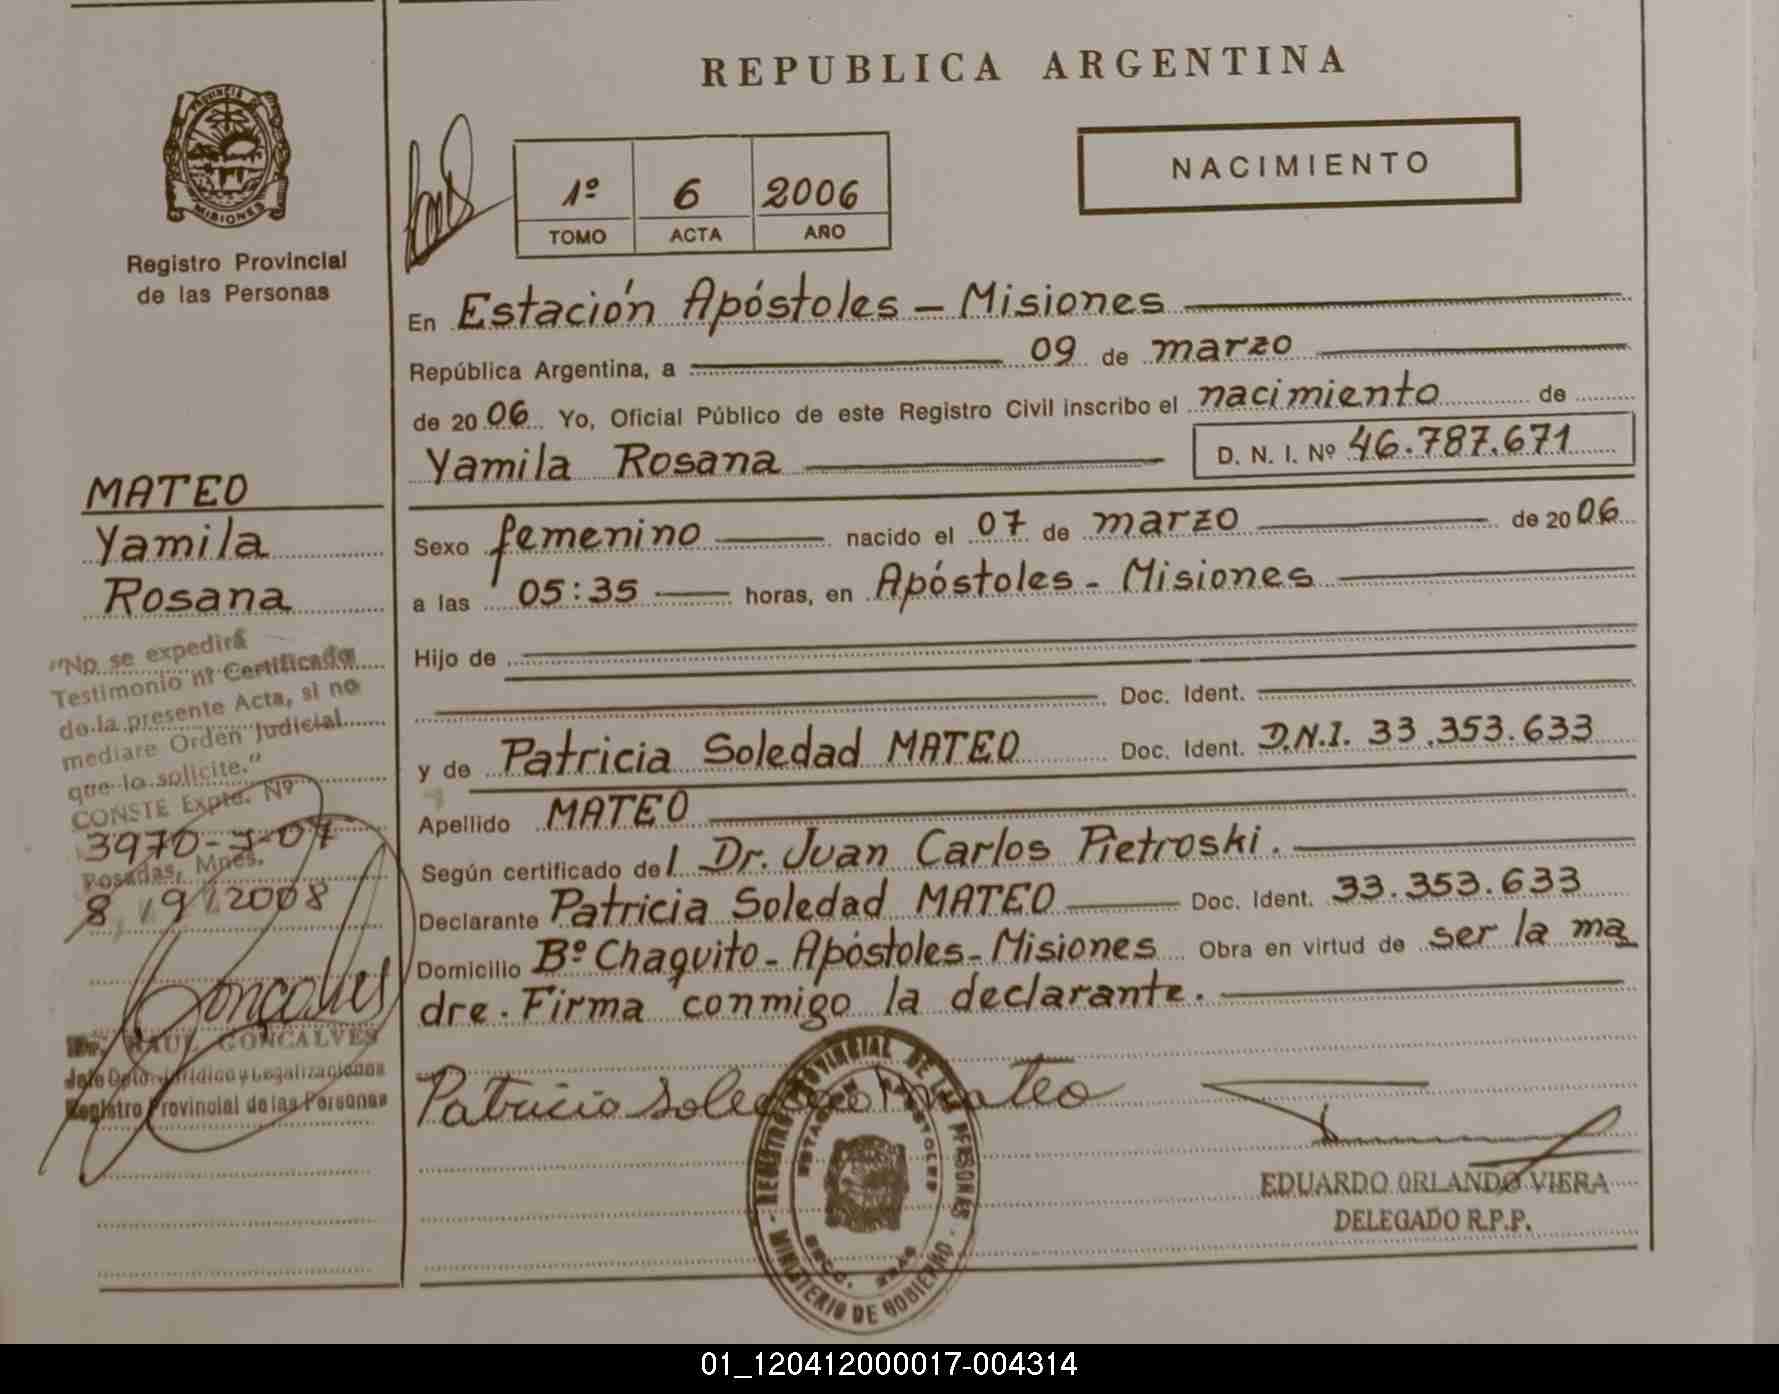 REPUBLICA ARGENTINA
PROVINCIA DE
MISIONES
Registro Provincial
de las Personas
1º 6 2006
TOMO ACTA AÑO
NACIMIENTO
En Estación Apóstoles - Misiones
República Argentina, a 09 de marzo
de 2006 Yo, Oficial Público de este Registro Civil inscribo el nacimiento de
Yamila Rosana D. N. I. Nº 46.787.671
Sexo femenino nacido el 07 de marzo de 2006
a las 05:35 horas, en Apóstoles - Misiones
Hijo de
Doc. Ident.
y de Patricia Soledad MATEO Doc. Ident. D.N.I. 33.353.633
Apellido MATEO
Según certificado del Dr. Juan Carlos Pietroski.
Declarante Patricia Soledad MATEO Doc. Ident. 33.353.633
Domicilio Bº Chaquito - Apóstoles - Misiones Obra en virtud de ser la ma
dre. Firma conmigo la declarante.
Patricia Soledad Mateo
EDUARDO ORLANDO VIERA
DELEGADO R.P.P.
REGISTRO PROVINCIAL DE LAS PERSONAS
MINISTERIO DE GOBIERNO
MATEO
Yamila
Rosana
"No se expedirá
Testimonio ni Certificado
de la presente Acta, si no
mediare Orden Judicial
que lo solicite."
CONSTE Expte. Nº
3970-J-07
Posadas, Mnes.
8/9/2008
Goncalves
Dr. RAUL GONCALVES
Jefe Dpto. Jurídico y Legalizaciones
Registro Provincial de las Personas
01_120412000017-004314